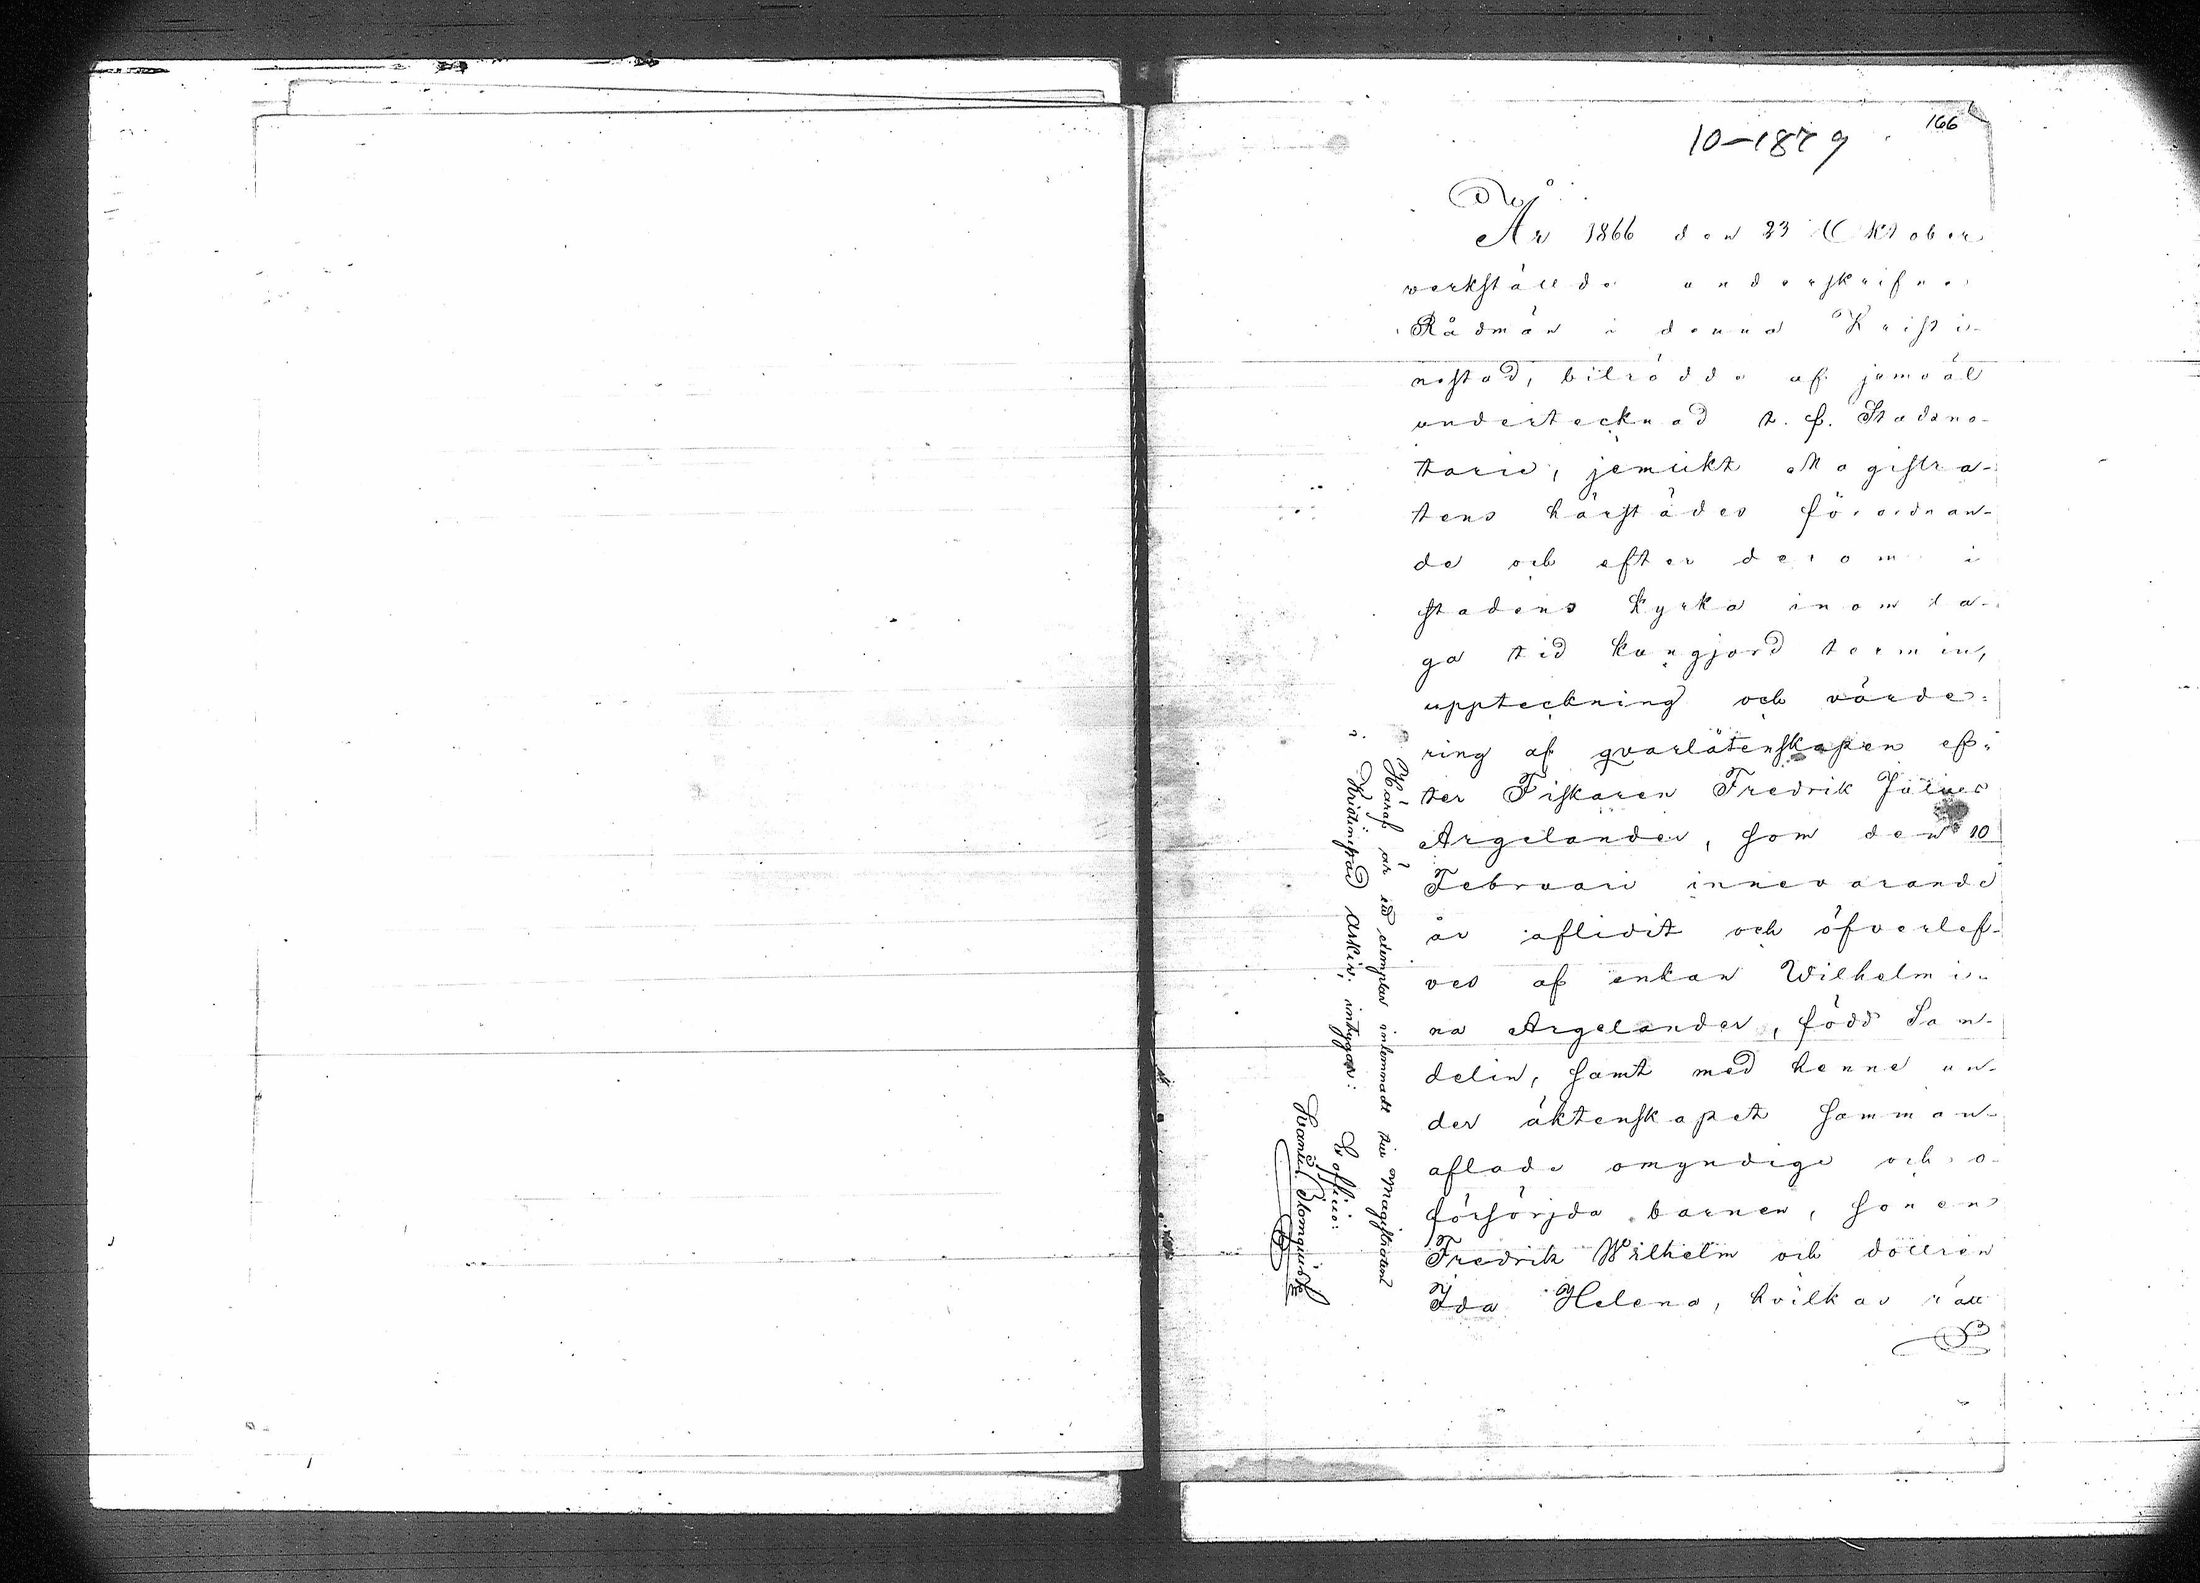 166
10-1879
År 1866 den 23 Oktober
verkstälde underskrifne
Rådmän i denna Kristi-
nestad, biträdde af jemväl
undertecknad t. f. Stadsno-
tarie, jemlikt Magistra-
tens härstädes förordnan-
de och efter derom i
stadens kyrka inom la-
ga tid kungjord termin,
uppteckning och värde-
ring af qvarlåtenskapen ef-
ter Fiskaren Fredrik Julius
Argelander, som den 10
Februari innevarande
år aflidit och öfverlef-
ves af enkan Wilhelmi-
na Argelander, född San-
delin, samt med henne un-
der äktenskapet samman-
aflade omyndige och o-
försörjda barnen, sonen
Fredrik Wilhelm och dottren
Ida Helena, hvilkas rätt
Häraf är ett exemplar inlemnadt till Magistraten
i Kristinestad intygar: Ex officio:
Blomqvist